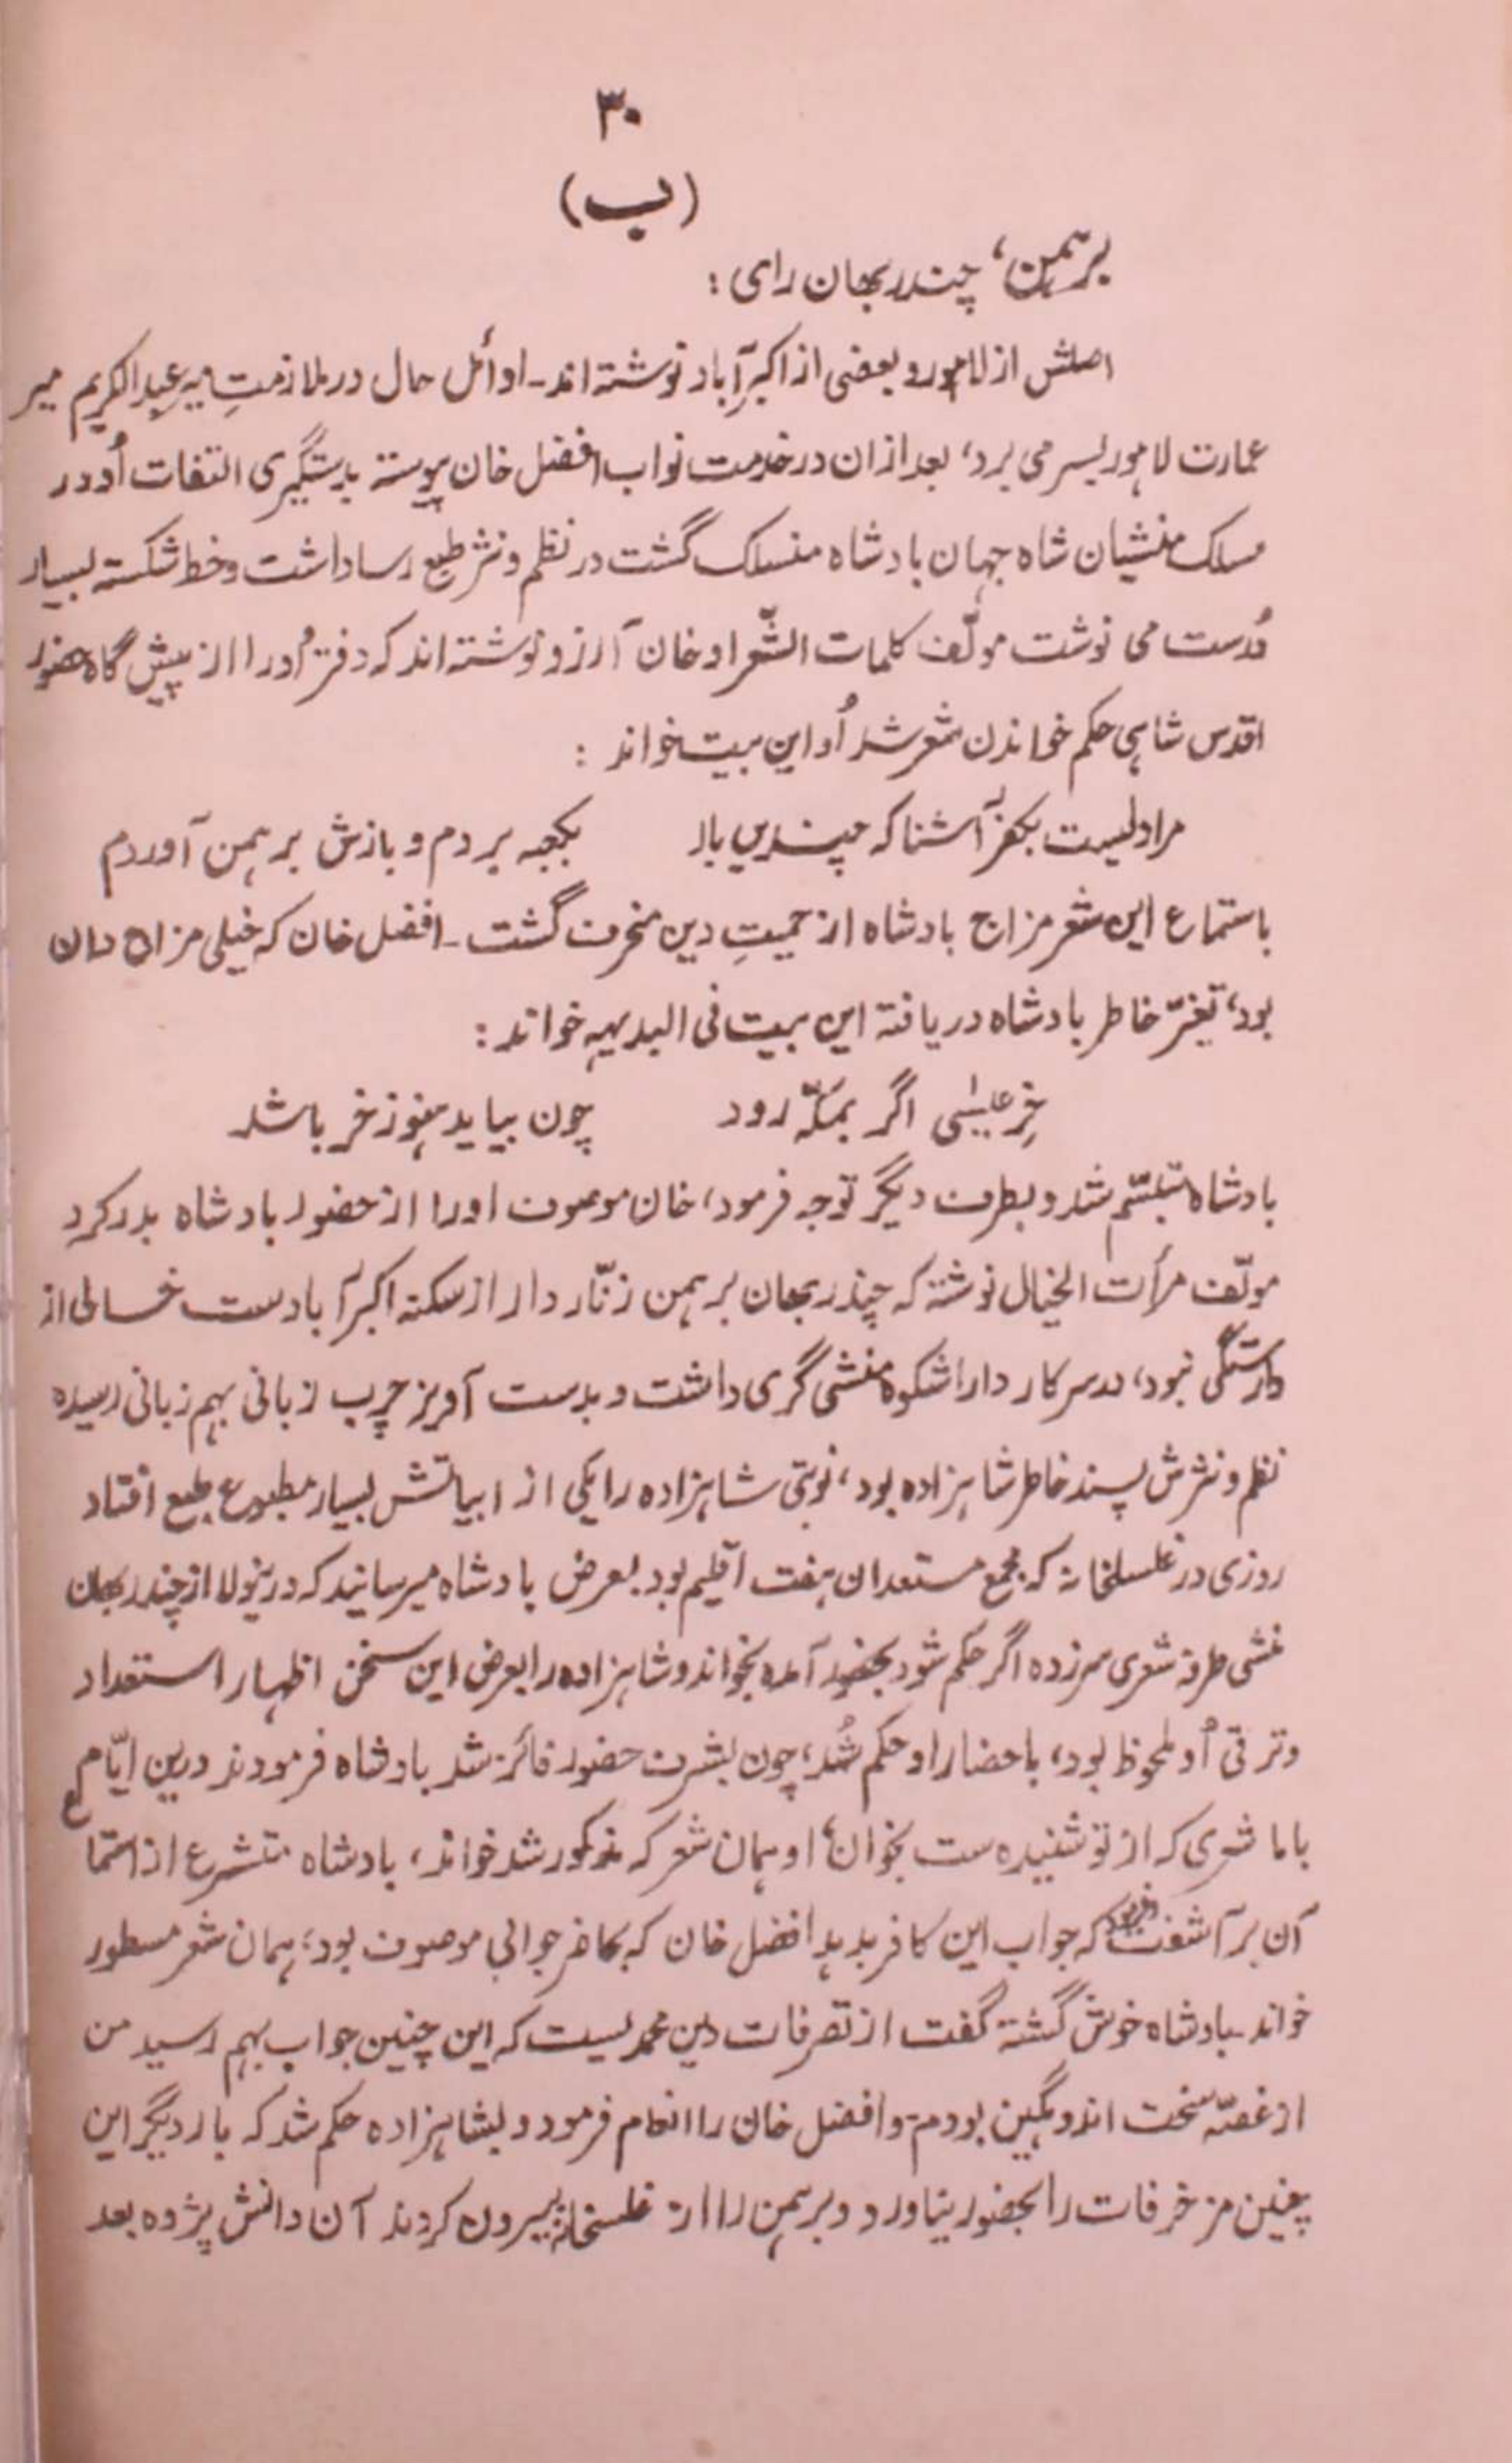 ۳۰
(ب)
برہمن، چندر بھان رای :
اصلش از لاہور و بعضی از اکبر آباد نوشته اند ـ اوائل حال در ملازمتِ میر عبد الکریم میر
عمارت لاہور بسر می برد، بعد ازان در خدمت نواب افضل خان پیوسته بدستگیری التفات اُو در
مسلک منشیان شاه جہان بادشاه منسلک گشت در نظم و نثر طبع رسا داشت و خط شکسته بسیار
دُرست می نوشت مولّف کلمات الشّعرا و خان آرزو نوشته اند که دفترُ اُو را از پیش گاه حضور
اقدس شاہی حکم خواندن شعر شد اُو این بیت خواند :
مرا دلیست بکفر آشنا که چندین بار بکعبه بردم و بازش برہمن آوردم
باستماع این شعر مزاج بادشاه از حمیتِ دین منحرف گشت ـ افضل خان که خیلی مزاج دان
بود، تغیّر خاطر بادشاه دریافته این بیت فی البدیہہ خواند :
خرِ عیسٰی اگر بمکّه رود چون بیاید ہنوز خر باشد
بادشاه متبسّم شد و بطرف دیگر توجه فرمود، خان موصوف اورا از حضور بادشاه بدر کرد
مولّف مرأت الخیال نوشته که چندر بھان برہمن زنّار دار از سکنه اکبر آبادست خالی از
وارستگی نبود، در سرکار دارا شکوه منشی گری داشت و بدست آویز چرب زبانی بہم زبانی رسیده
نظم و نثرش پسند خاطر شاہزاده بود، نوبتی شاہزاده را یکی از ابیاتش بسیار مطبوع طبع افتاد
روزی در غسلخانه که مجمع مستعدان ہفت اقلیم بود بعرض بادشاه میرسانید که درینولا از چندر بھان
منشی طرفه شعری سرزده اگر حکم شود بحضور آمده بخواند و شاہزاده را بعرض این سخن اظہار استعداد
و ترقی اُو ملحوظ بود، باحضار او حکم شُد، چون بشرف حضور فائز شد بادشاه فرمودند درین ایّام
بابا شعری که از تو شنیده ست بخوان، او ہمان شعر که مذکور شد خواند، بادشاه متشرع از استماع
آن بر آشفت و فرمود که جواب این کافر بدہد افضل خان که بحاضر جوابی موصوف بود، ہمان شعر مسطور
خواند ـ بادشاه خوش گشته گفت از تصرفات دین محمدیست که این چنین جواب بہم رسید من
از غصّه سخت اندوہگین بودم ـ و افضل خان را انعام فرمود و بشاہزاده حکم شد که بار دیگر این
چنین مزخرفات را بحضور نیاورد و برہمن را از غسلخانه بیرون کردند آن دانش پژوه بعد